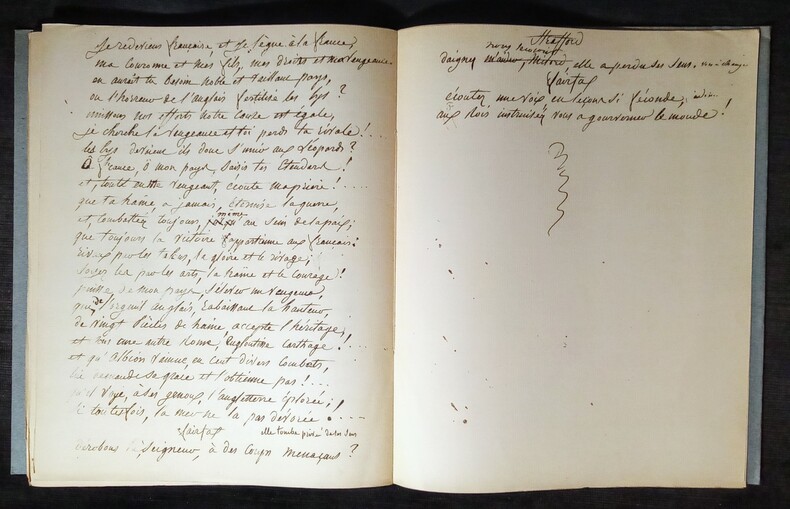 Je redeviens française et je lègue à la france,
ma couronne et mes fils, mes droits et ma vengeance.
en aurait tu besoin noble et vaillant pays,
ou l'horreur de l'anglais fertilise les lys ?
unissons nos efforts notre cause est égale,
je cherche la vengeance et toi perds ta rivale ! . .
les lys devraient ils donc s'unir aux léopards ?
ô france, ô mon pays, saisis tes étendards !
et, toute entière vengeant, écoute ma prière ! . . . .
que ta haine a jamais, éternise la guerre,
et, combattez toujours, même au sein de la paix ;
que toujours la victoire appartienne aux français.
par les talens, la gloire et le rivage ;
soyez les par les arts, la haine et le courage !
puisse de mon pays, s'élever un vengeur,
de l'orgueil anglais, rabaissant la hauteur,
de vingt siècles de haine accepte l'héritage,
et dans une autre Rome, engloutisse carthage ! . . .
et qu'albion vaincue, en cent divers combats,
lui demande sa grâce et l'obtienne pas ! . . .
qu'il voye, à ses genoux, l'angleterre éplorée ;
si toutefois, la mer ne la pas dévorée ! . . . .
fairfax elle tombe privée de ses sens
dérobons la, seigneur, à des coups menaçans ?
Strafford
nous secourir
daignez milord, elle a perdu ses sens.
fairfax
écoutez, une voix en leçon si féconde,
aux Rois instruisez vous a gouverner le monde !